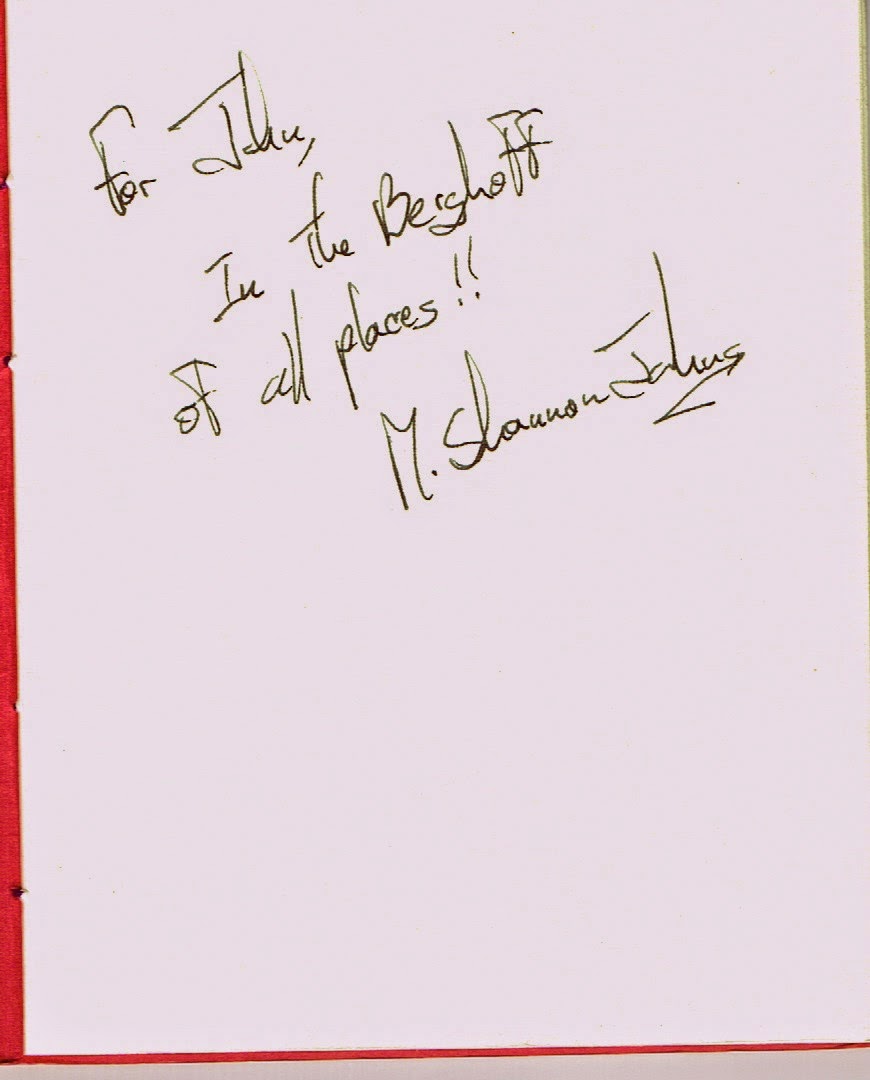 For John,
In the Berghoff
of all places!!
M. Shannon Johns